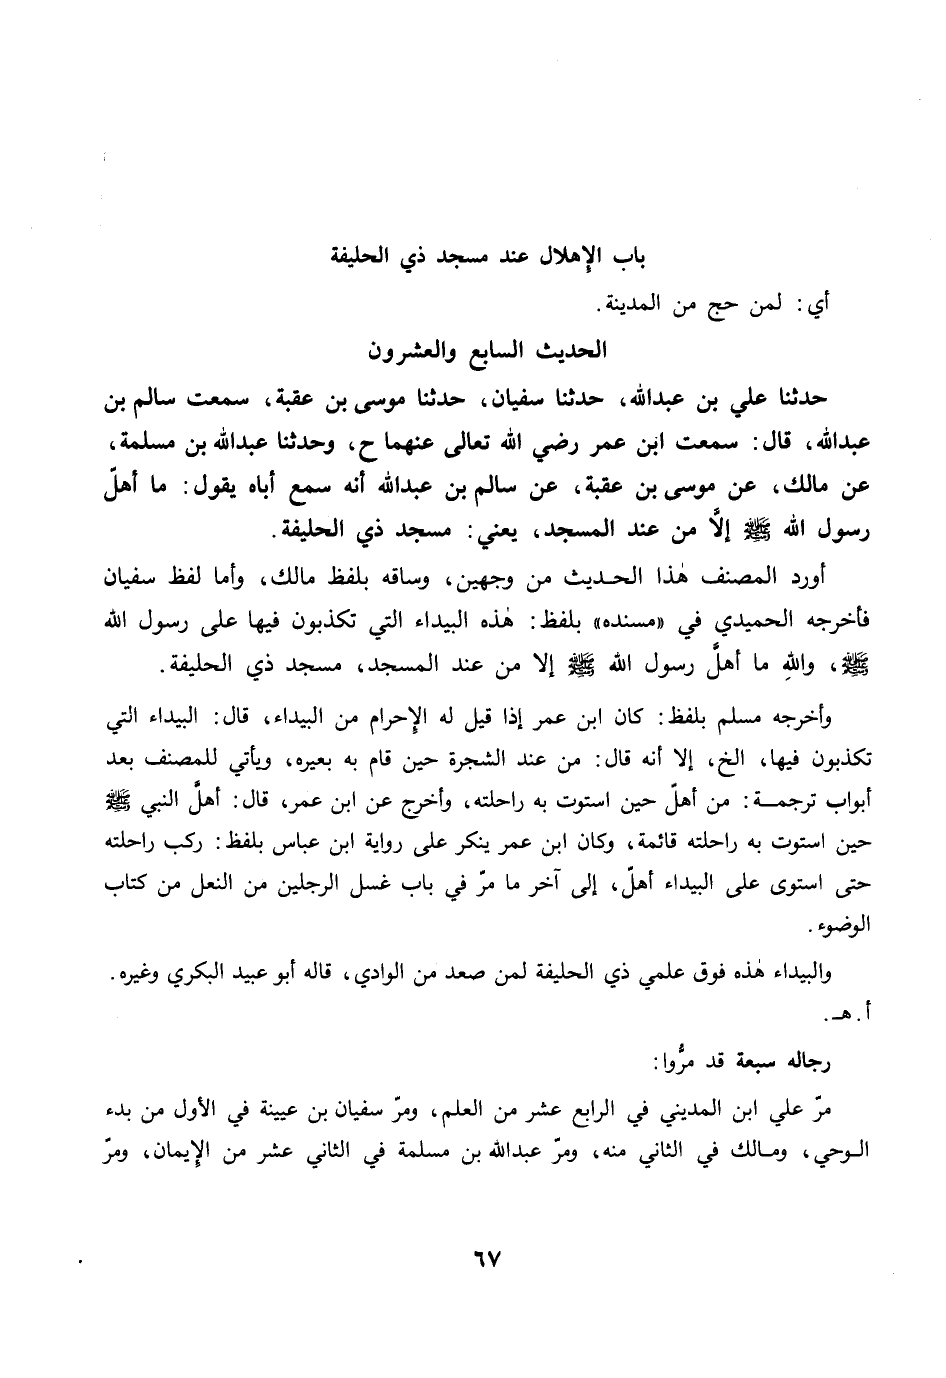 باب الإهلال عند مسجد ذي الحليفة
أي: لمن حج من المدينة.
الحديث السابع والعشرون
حدثنا علي بن عبدالله، حدثنا سفيان، حدثنا موسى بن عقبة، سمعت سالم بن
عبدالله، قال: سمعت ابن عمر رضي الله تعالى عنهما ح، وحدثنا عبدالله بن مسلمة،
عن مالك، عن موسى بن عقبة، عن سالم بن عبدالله أنه سمع أباه يقول: ما أهلّ
رسول الله ﷺ إلَّا من عند المسجد، يعني: مسجد ذي الحليفة.
أورد المصنف هٰذا الحديث من وجهين، وساقه بلفظ مالك، وأما لفظ سفيان
فأخرجه الحميدي في «مسنده» بلفظ: هٰذه البيداء التي تكذبون فيها على رسول الله
ﷺ، واللهِ ما أهلَّ رسول الله ﷺ إلا من عند المسجد، مسجد ذي الحليفة.
وأخرجه مسلم بلفظ: كان ابن عمر إذا قيل له الإحرام من البيداء، قال: البيداء التي
تكذبون فيها، الخ، إلا أنه قال: من عند الشجرة حين قام به بعيره، ويأتي للمصنف بعد
أبواب ترجمة: من أهلّ حين استوت به راحلته، وأخرج عن ابن عمر، قال: أهلَّ النبي ﷺ
حين استوت به راحلته قائمة، وكان ابن عمر ينكر على رواية ابن عباس بلفظ: ركب راحلته
حتى استوى على البيداء أهلّ، إلى آخر ما مرّ في باب غسل الرجلين من النعل من كتاب
الوضوء.
والبيداء هٰذه فوق علمي ذي الحليفة لمن صعد من الوادي، قاله أبو عبيد البكري وغيره.
أ. هـ.
رجاله سبعة قد مرُّوا:
مرّ علي ابن المديني في الرابع عشر من العلم، ومرّ سفيان بن عيينة في الأول من بدء
الوحي، ومالك في الثاني منه، ومرّ عبدالله بن مسلمة في الثاني عشر من الإيمان، ومرّ
٦٧